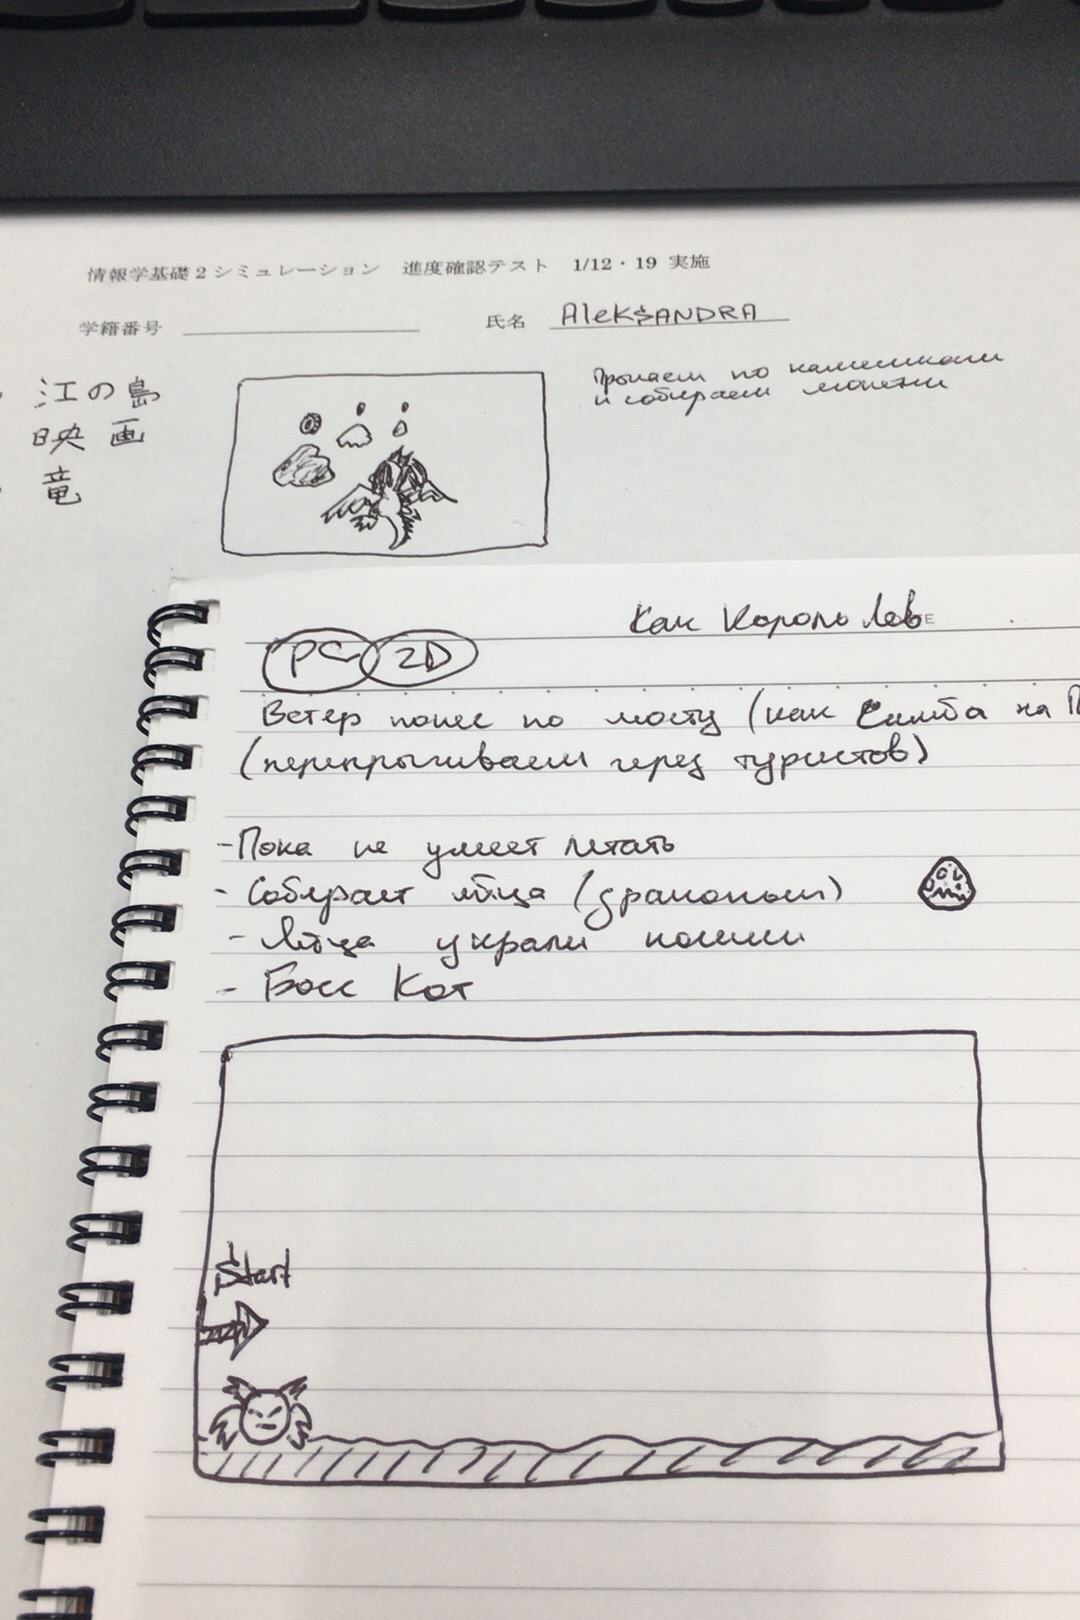 情報学基礎2シミュレーション 進度確認テスト 1/12・19 実施
学籍番号 氏名 AleKSANDRA
江の島
映画
竜
Прыгаем по камешкам
и собираем монетки
Как Король Лев
PC 2D
Ветер понес по мосту (как Симба на
(перепрыгиваем через туристов)
-Пока не умеет летать
-Собирает яйца (драконьи)
-Яйца украли кошки
- Босс Кот
Start